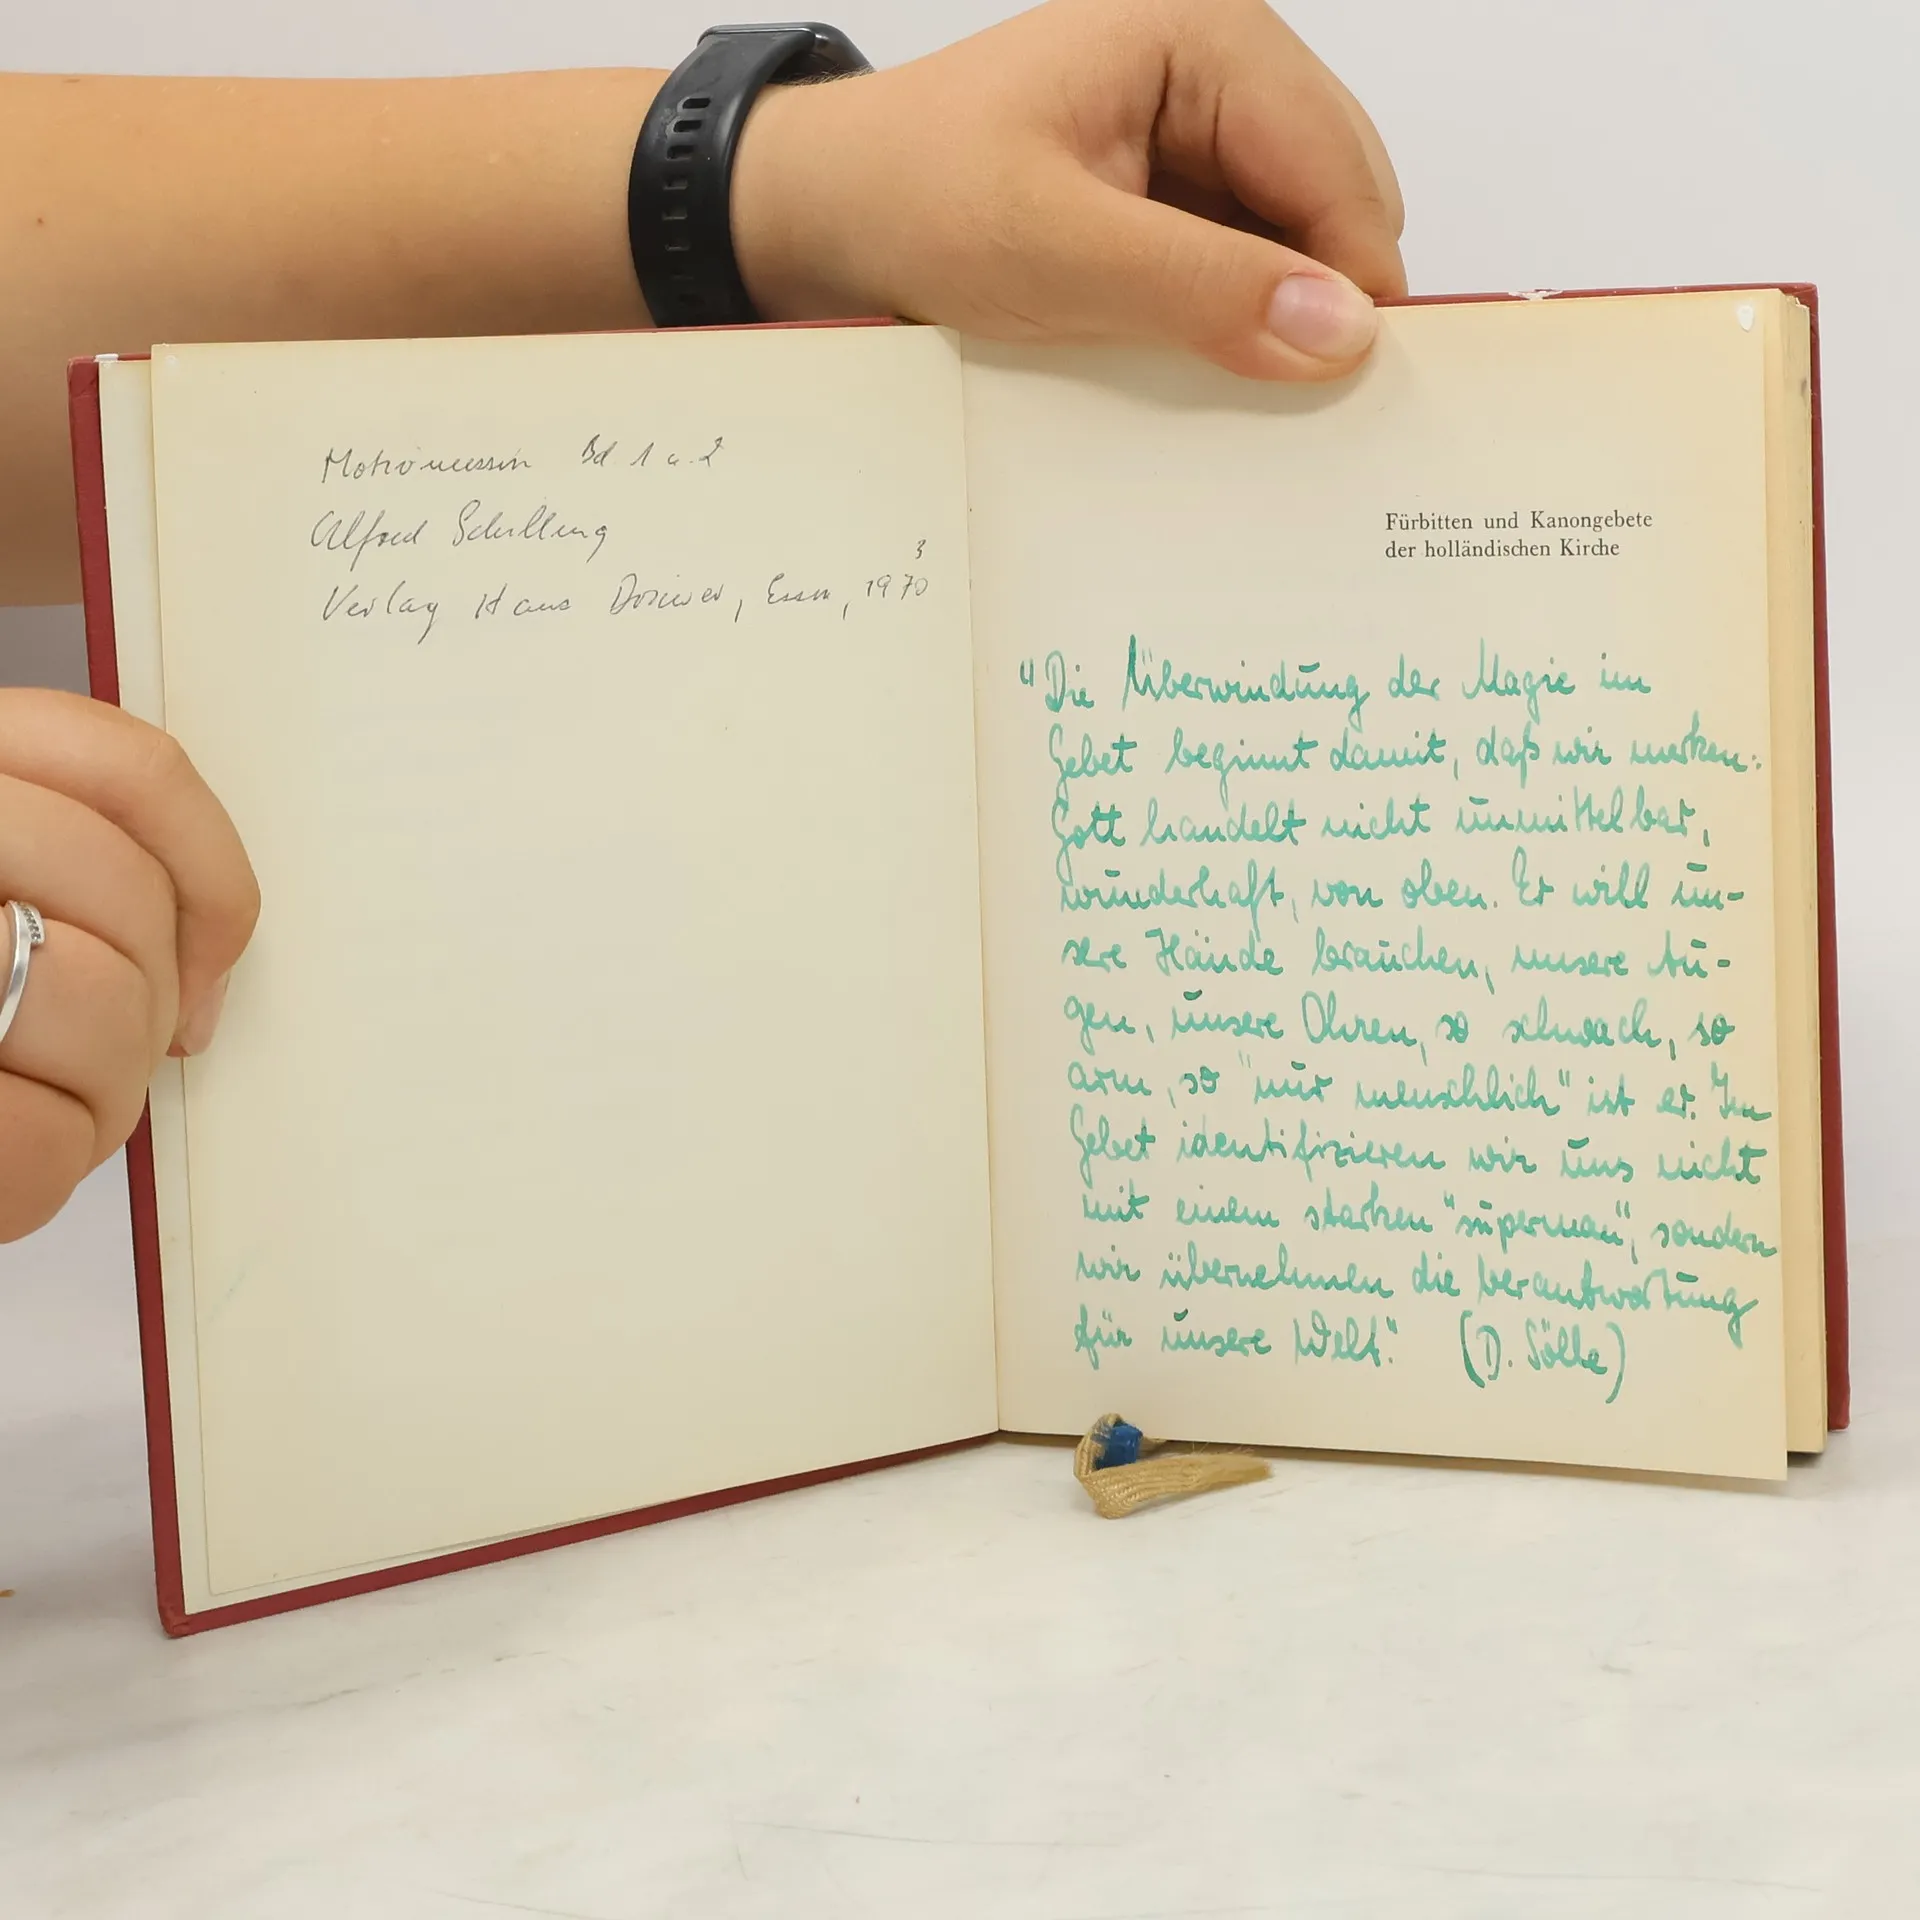 Motivmessen Bd 1 u. 2
Alfred Schilling
Verlag Hans Driewer, Essen, 1970³
Fürbitten und Kanongebete
der holländischen Kirche
"Die Überwindung der Magie im
Gebet beginnt damit, daß wir merken:
Gott handelt nicht unmittelbar,
wunderhaft, von oben. Er will un-
sere Hände brauchen, unsere Au-
gen, unsere Ohren, so schwach, so
arm, so "nur menschlich" ist er. Im
Gebet identifizieren wir uns nicht
mit einem starken "superman", sondern
wir übernehmen die Verantwortung
für unsere Welt." (D. Sölle)